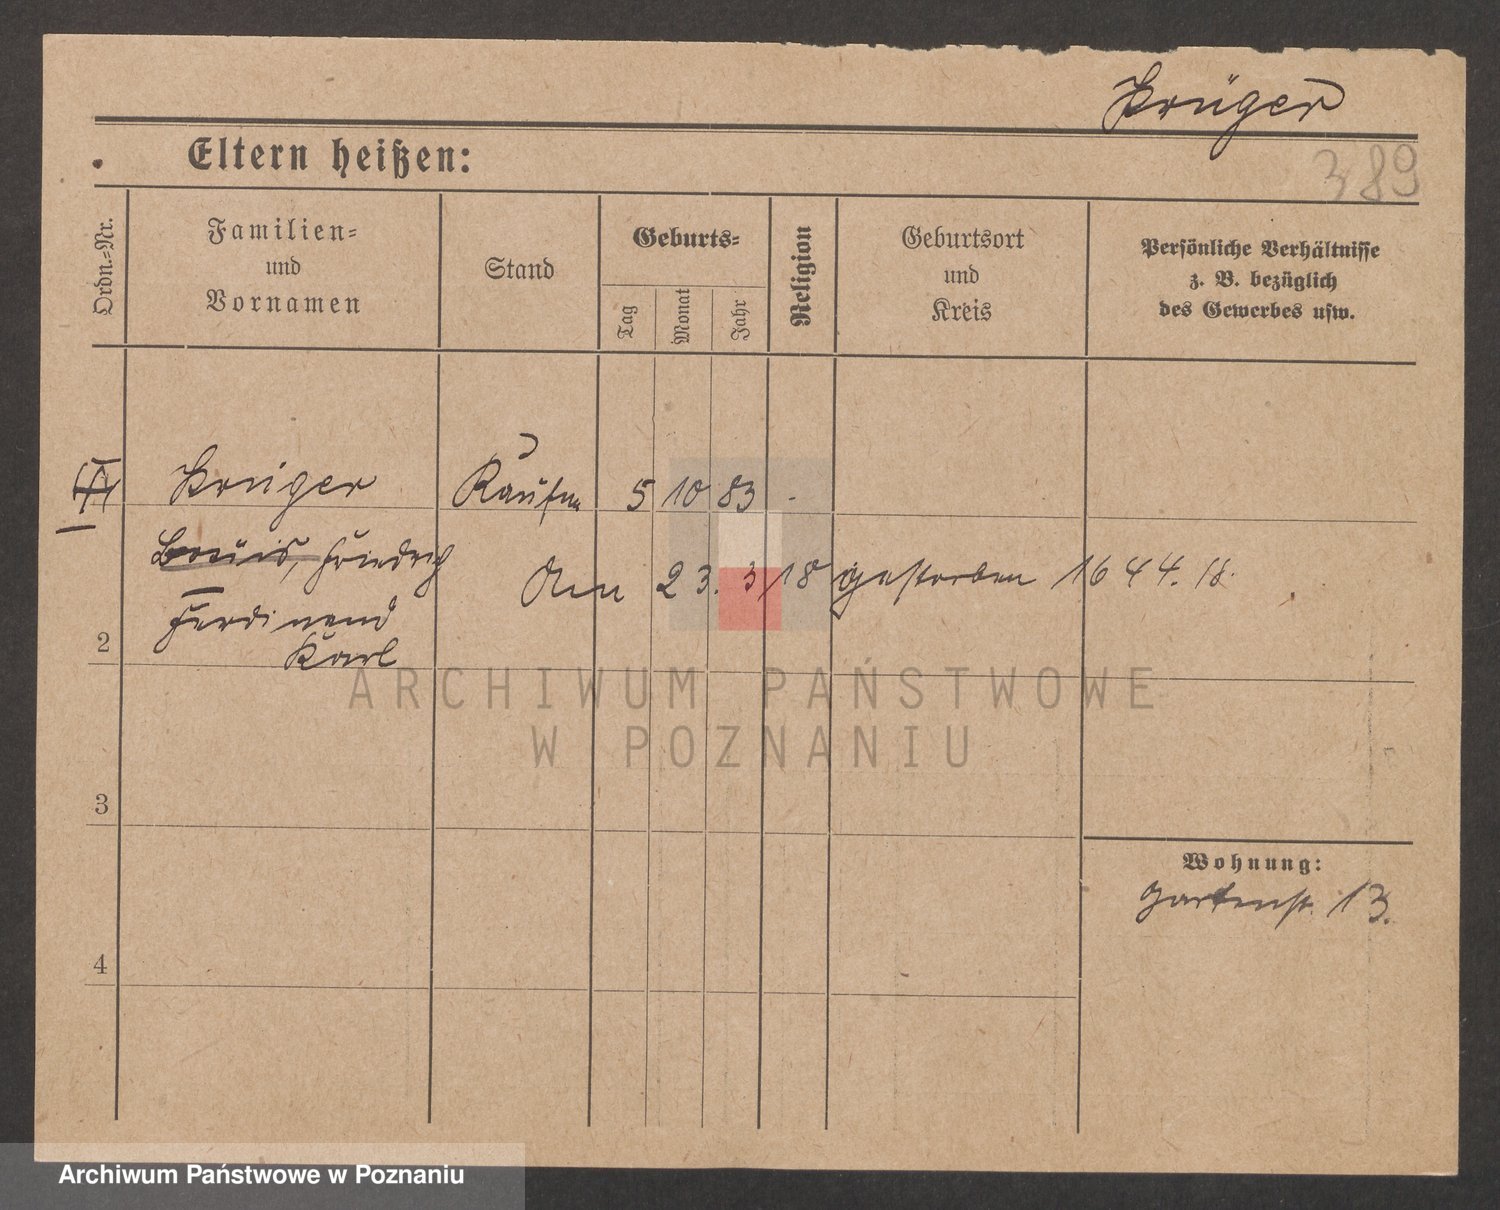 Krüger
Eltern heißen:
389
Ordn.=Nr.
Familien=
und
Vornamen
Stand
Geburts=
Tag
Monat
Jahr
Religion
Geburtsort
und
Kreis
Persönliche Verhältnisse
z. B. bezüglich
des Gewerbes usw.
Krüger Kaufm 5 10 83 -
Louis, Friedrich
den 23. 3/18 gestorben 1644. 18.
Ferdinand
2
Karl
ARCHIWUM PAŃSTWOWE
W POZNANIU
3
Wohnung:
Gartenstr. 13.
4
Archiwum Państwowe w Poznaniu